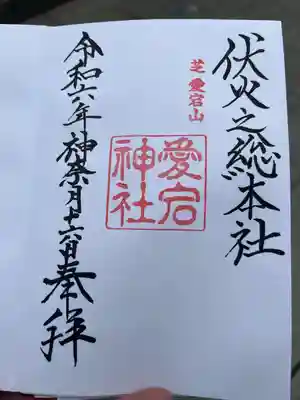 伏火之総本社
芝愛宕山
愛宕
神社
令和六年神奈月十六日奉拝